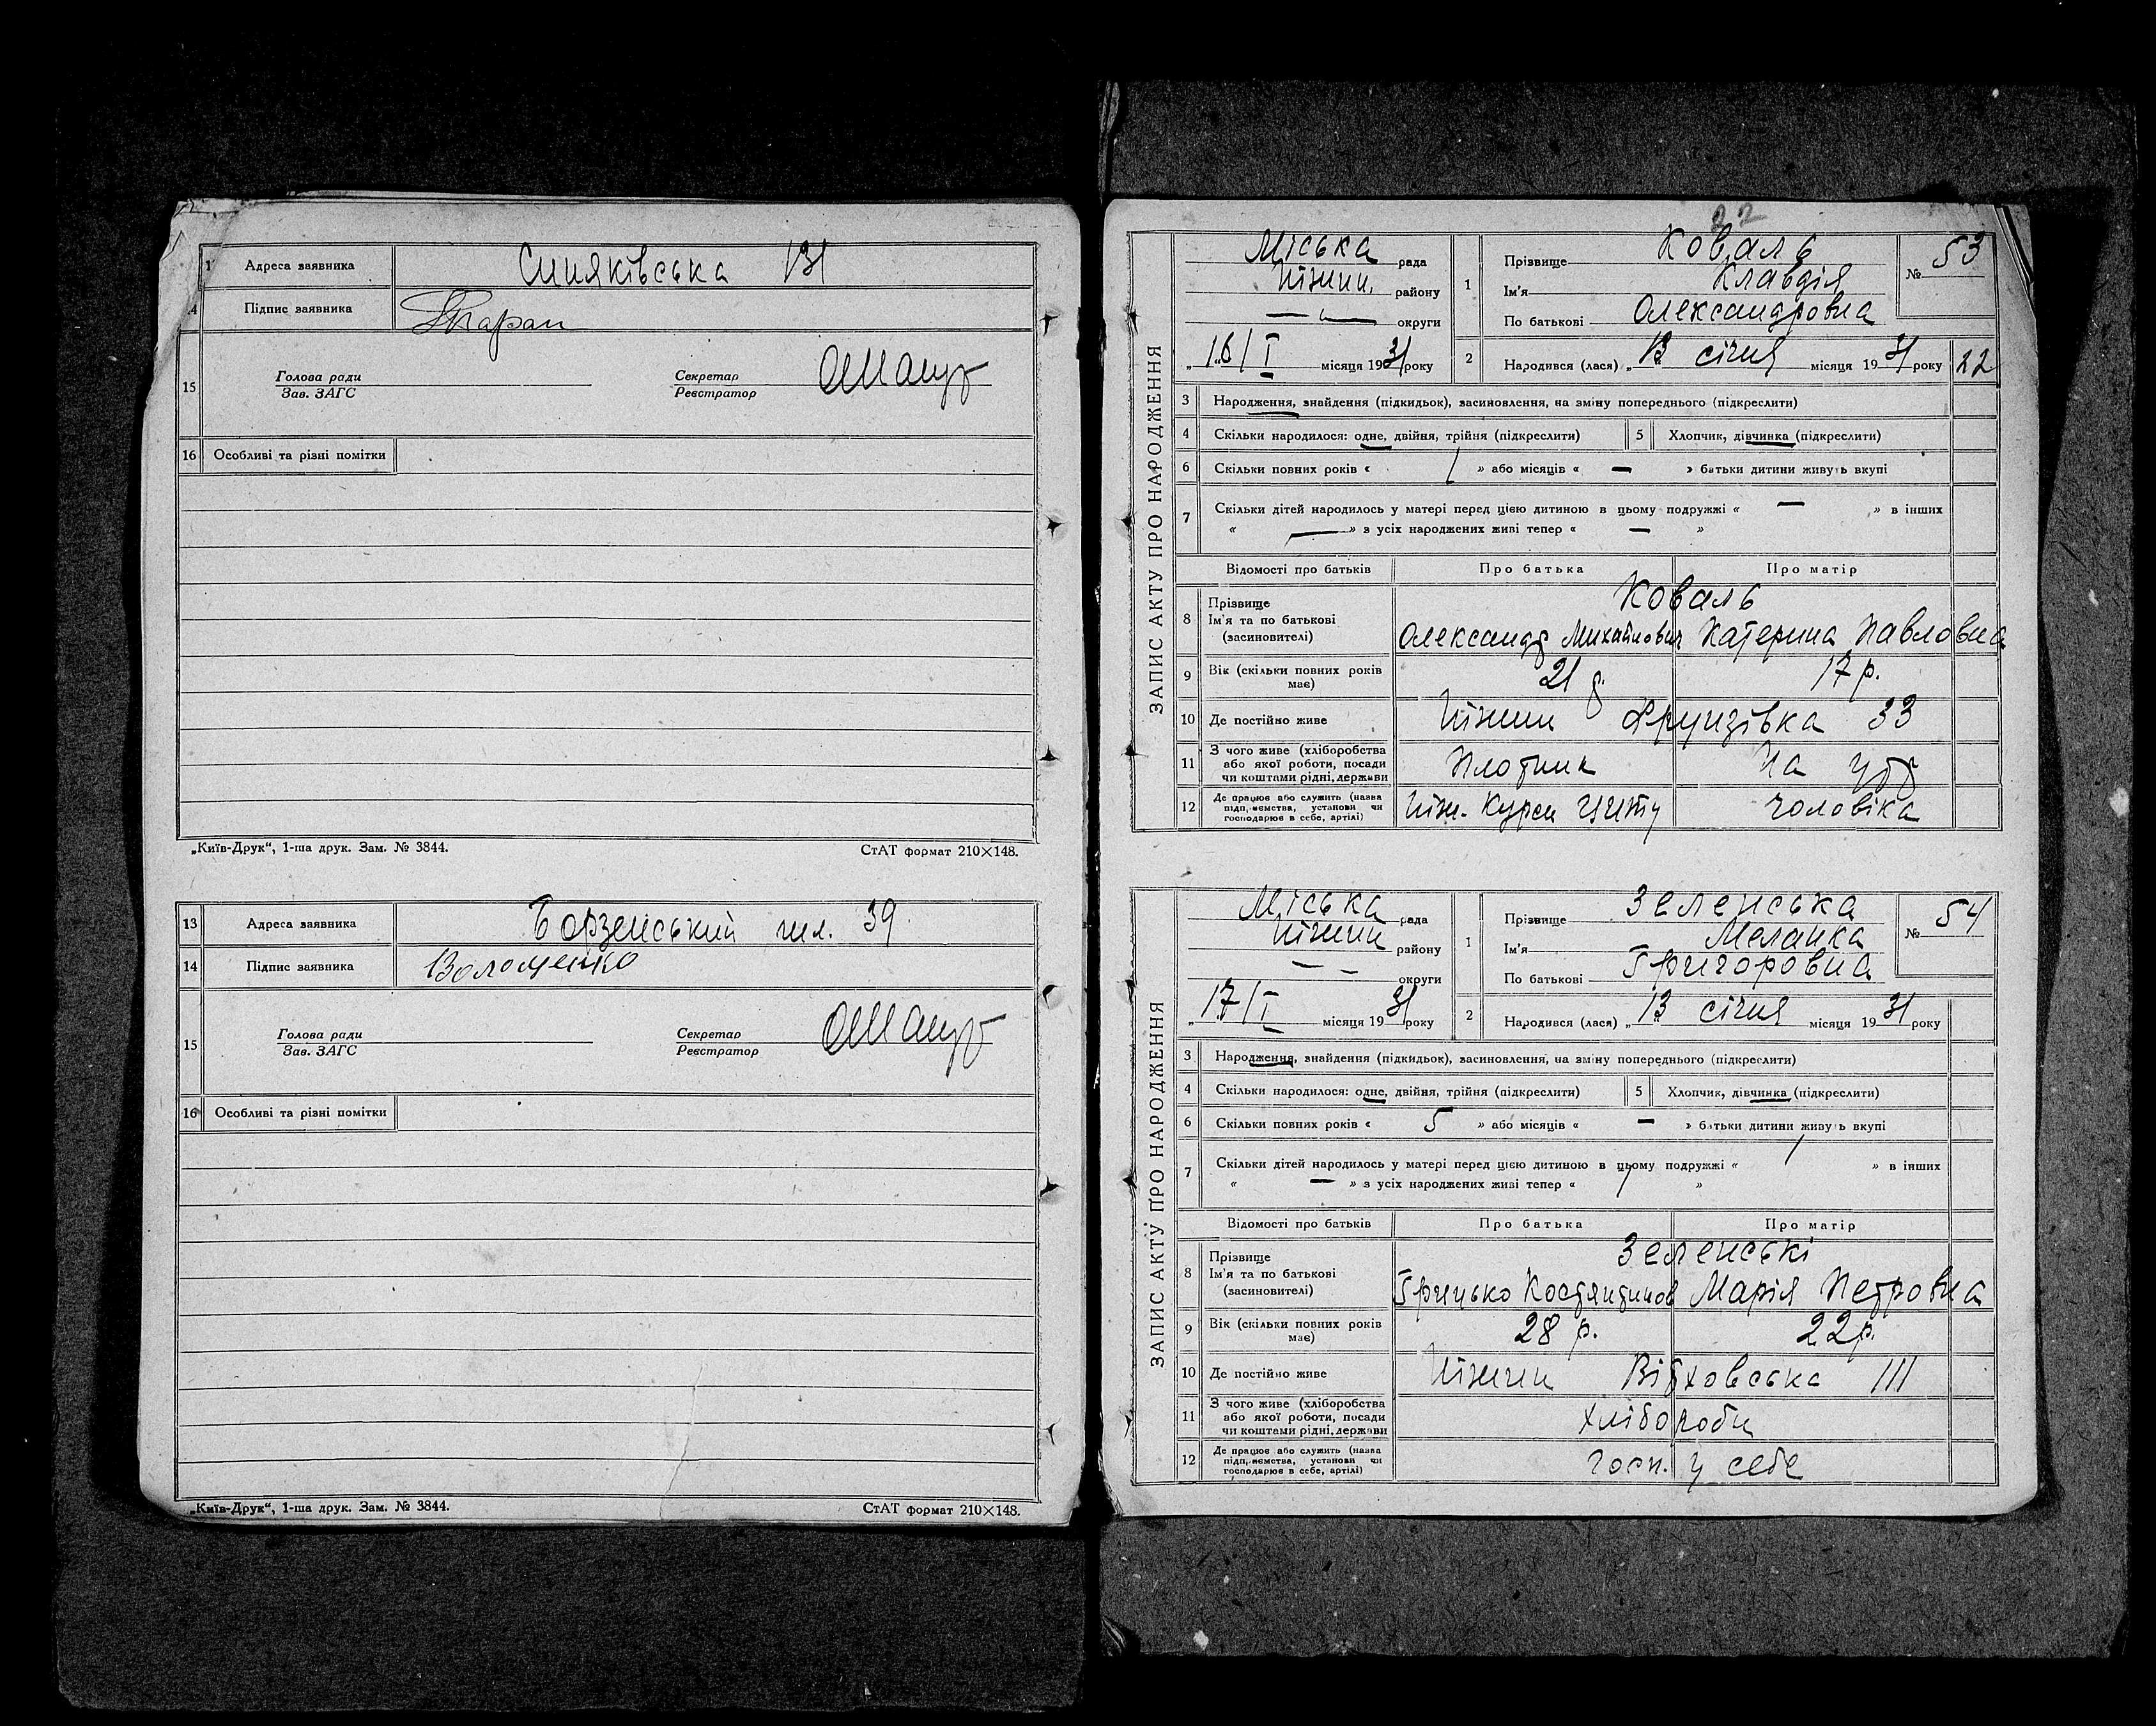 Адреса заявника Синяківська 131
14 Підпис заявника
15 Голова ради
Зав. ЗАГС
Секретар
Реєстратор
16 Особливі та різні помітки
„Київ-Друк“, 1-ша друк. Зам. № 3844. СтАТ формат 210×148.
13 Адреса заявника Борзенський шл. 39
14 Підпис заявника Волощенко
15 Голова ради
Зав. ЗАГС
Секретар
Реєстратор
16 Особливі та різні помітки
„Київ-Друк“, 1-ша друк. Зам. № 3844. СтАТ формат 210×148.
22
ЗАПИС АКТУ ПРО НАРОДЖЕННЯ
Міська рада
Ніжин. району
— „ — округи
„16/I місяця 1931 року
1 Прізвище Коваль
Ім'я Клавдія
По батькові Олександровна
№ 53
2 Народився (лася) „13 січня місяця 1931 року 22
3 Народження, знайдення (підкидьок), засиновлення, на зміну попереднього (підкреслити)
4 Скільки народилося: одне, двійня, трійня (підкреслити) 5 Хлопчик, дівчинка (підкреслити)
6 Скільки повних років « 1 » або місяців « — » батьки дитини живуть вкупі
7 Скільки дітей народилось у матері перед цією дитиною в цьому подружжі « — » в інших
« — » з усіх народжених живі тепер « — »
Відомості про батьків Про батька Про матір
8 Прізвище Ім'я та по батькові (засиновителі) Коваль
Олександр Михайлович Катерина Павловна
9 Вік (скільки повних років має) 21 р. 17 р.
10 Де постійно живе Ніжин Фрунзівка 33
11 З чого живе (хліборобства або якої роботи, посади чи коштами рідні, держави Плотник На утр
12 Де працює або служить (назва підприємства, установи чи господарює в себе, артілі) Ніж. Курси чоловіка
ЗАПИС АКТУ ПРО НАРОДЖЕННЯ
Міська рада
Ніжин району
— — округи
„17/I місяця 1931 року
1 Прізвище Зеленська
Ім'я Меланка
По батькові Григоровна
№ 54
2 Народився (лася) „13 січня місяця 1931 року
3 Народження, знайдення (підкидьок), засиновлення, на зміну попереднього (підкреслити)
4 Скільки народилося: одне, двійня, трійня (підкреслити) 5 Хлопчик, дівчинка (підкреслити)
6 Скільки повних років « 5 » або місяців « — » батьки дитини живуть вкупі
7 Скільки дітей народилось у матері перед цією дитиною в цьому подружжі « 1 » в інших
« — » з усіх народжених живі тепер « 1 »
Відомості про батьків Про батька Про матір
8 Прізвище Ім'я та по батькові (засиновителі) Зеленські
Грицько Костянтинов Марія Петровна
9 Вік (скільки повних років має) 28 р. 22 р.
10 Де постійно живе Ніжин 111
11 З чого живе (хліборобства або якої роботи, посади чи коштами рідні, держави Хлібороби
12 Де працює або служить (назва підприємства, установи чи господарює в себе, артілі) Госп. у себе